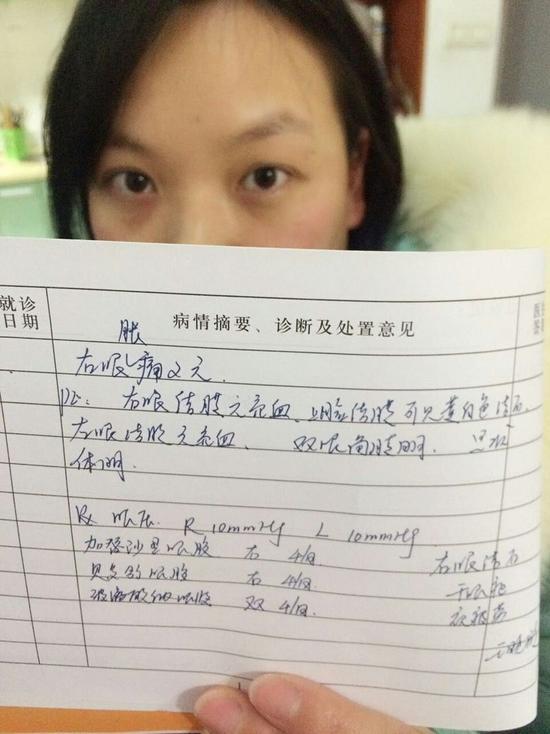 就诊日期
病情摘要、诊断及处置意见
胀
右眼痛2天.
PE: 右眼结膜充血、上睑结膜可见黄白色结石,
左眼结膜无充血、双眼角膜明.
体明.
Rx 眼压. R 10mmHg L 10mmHg
加替沙星眼 右 4/日 右眼结石
眼 右 4/日.
玻璃酸钠眼 双 4/日.